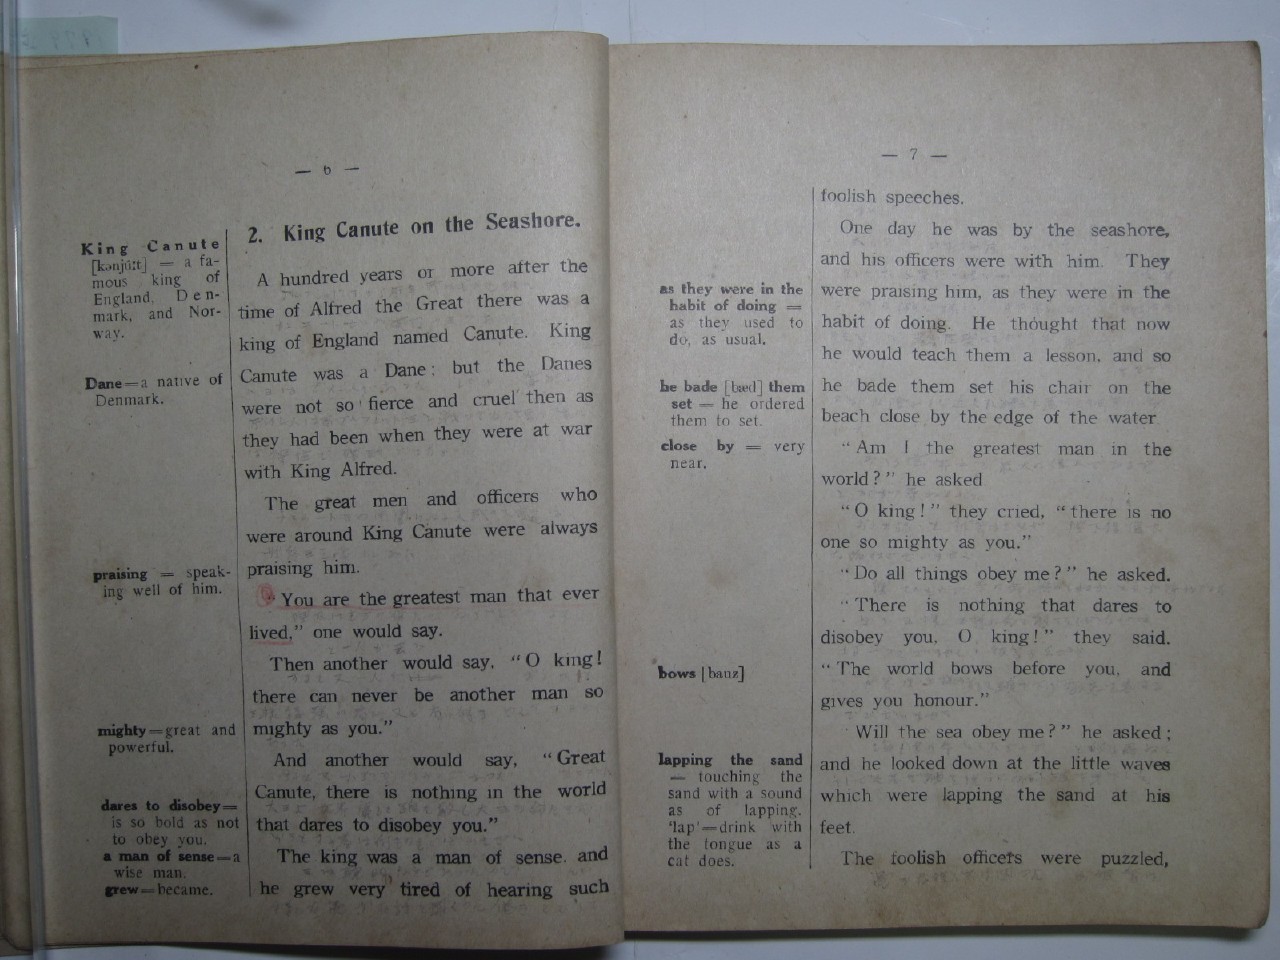 — 6 —
2. King Canute on the Seashore.
King Canute
[kənjúːt] = a fa-
mous king of
England, Den-
mark, and Nor-
way.
Dane=a native of
Denmark.
praising = speak-
ing well of him.
mighty=great and
powerful.
dares to disobey=
is so bold as not
to obey you.
a man of sense=a
wise man.
grew=became.
A hundred years or more after the
time of Alfred the Great there was a
king of England named Canute. King
Canute was a Dane; but the Danes
were not so fierce and cruel then as
they had been when they were at war
with King Alfred.
The great men and officers who
were around King Canute were always
praising him.
"You are the greatest man that ever
lived," one would say.
Then another would say, "O king!
there can never be another man so
mighty as you."
And another would say, "Great
Canute, there is nothing in the world
that dares to disobey you."
The king was a man of sense, and
he grew very tired of hearing such
— 7 —
as they were in the
habit of doing =
as they used to
do, as usual.
he bade [bæd] them
set = he ordered
them to set.
close by = very
near.
bows [bauz]
lapping the sand
= touching the
sand with a sound
as of lapping.
'lap'=drink with
the tongue as a
cat does.
foolish speeches.
One day he was by the seashore,
and his officers were with him. They
were praising him, as they were in the
habit of doing. He thought that now
he would teach them a lesson, and so
he bade them set his chair on the
beach close by the edge of the water
"Am I the greatest man in the
world?" he asked
"O king!" they cried, "there is no
one so mighty as you."
"Do all things obey me?" he asked.
"There is nothing that dares to
disobey you, O king!" they said.
"The world bows before you, and
gives you honour."
"Will the sea obey me?" he asked;
and he looked down at the little waves
which were lapping the sand at his
feet.
The foolish officers were puzzled,